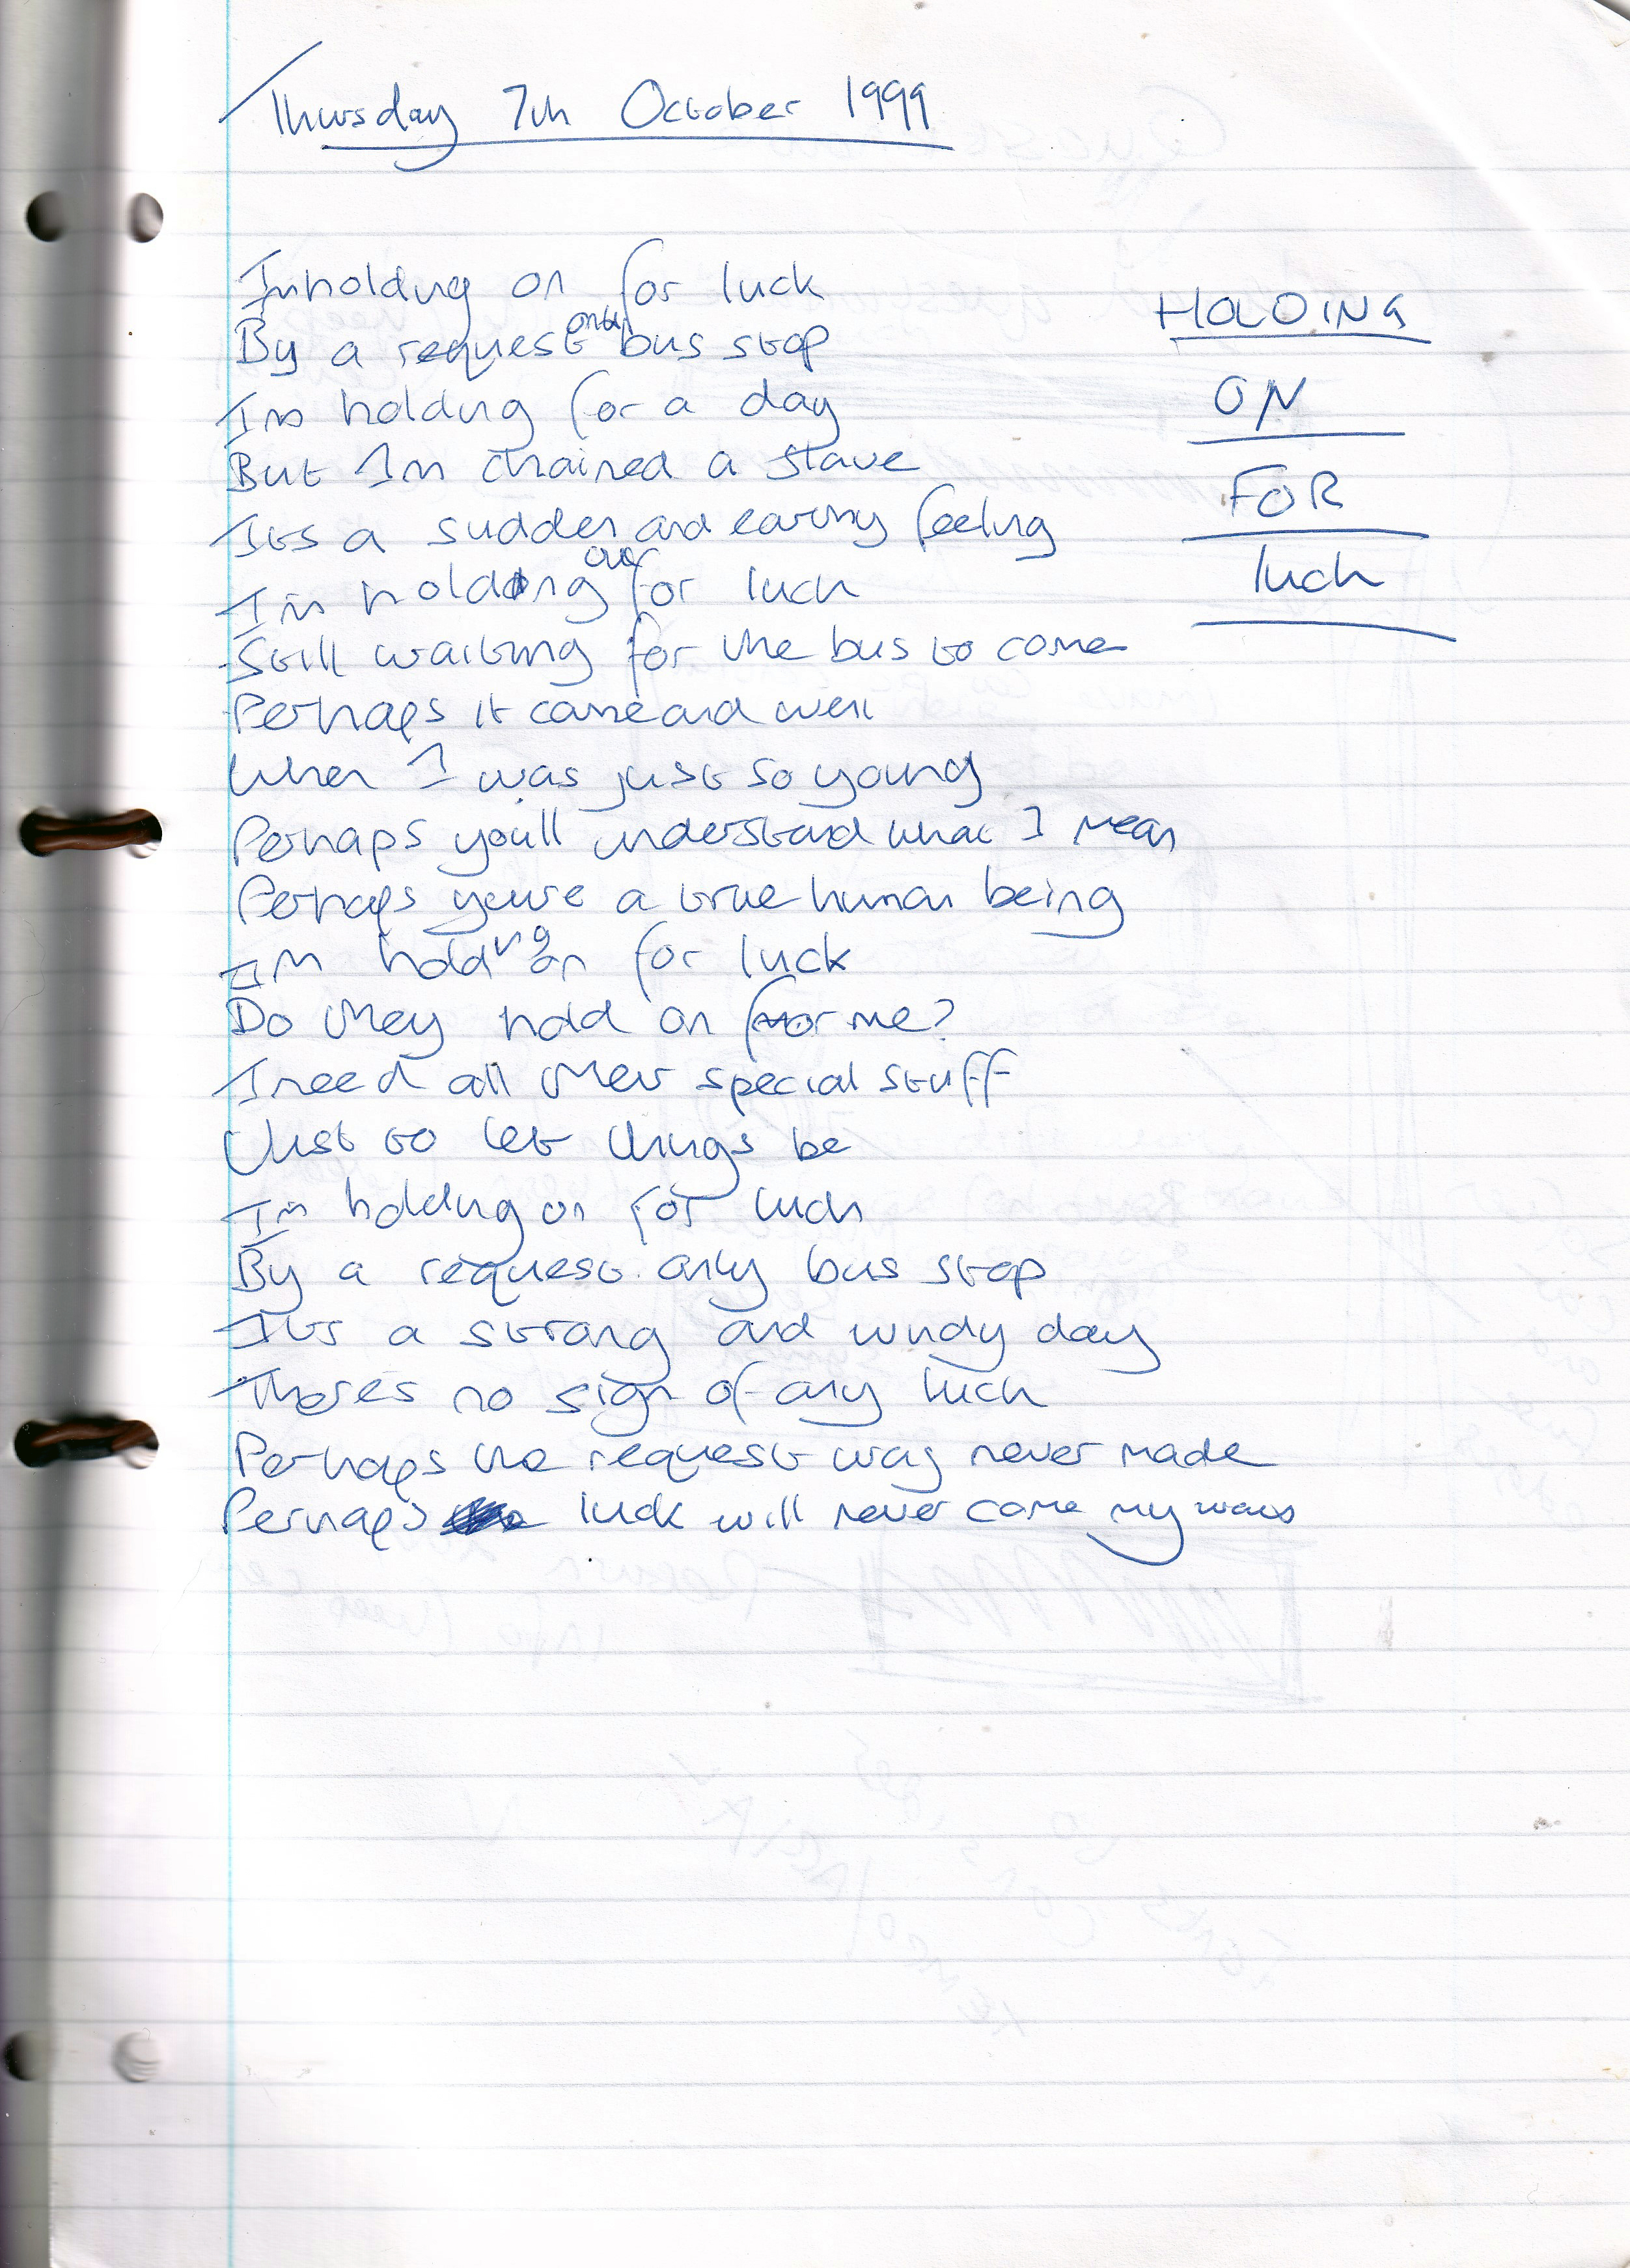 Thursday 7th October 1999
HOLDING
ON
FOR
luck
Im holding on for luck
By a request only bus stop
Im holding for a day
But Im chained a slave
Its a sudden and eating feeling
Im holding out for luck
Still waiting for the bus to come
Perhaps it came and went
When I was just so young
Perhaps youll understand what I mean
Perhaps youre a true human being
Im holding on for luck
Do they hold on for me?
I need all their special stuff
Just to let things be
Im holding on for luck
By a request only bus stop
Its a strong and windy day
Theres no sign of any luck
Perhaps the request was never made
Perhaps luck will never come my ways